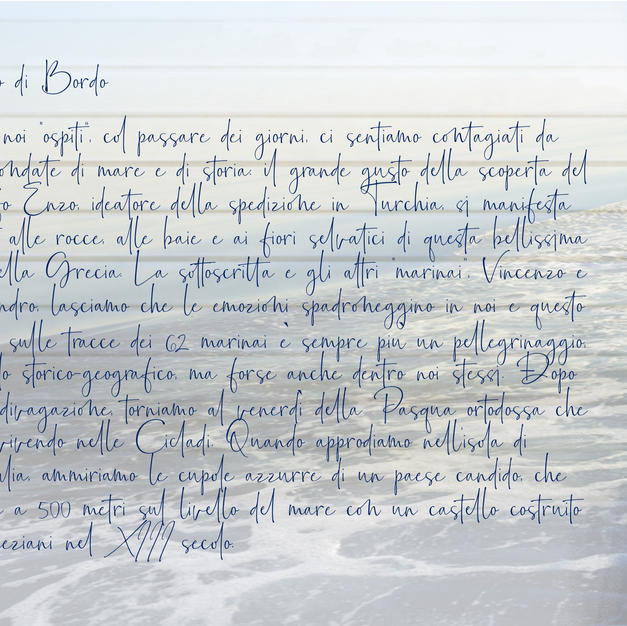 o di Bordo
noi "ospiti", col passare dei giorni, ci sentiamo contagiati da
ondate di mare e di storia: il grande gusto della scoperta del
o Enzo, ideatore della spedizione in Turchia, si manifesta
alle rocce, alle baie e ai fiori selvatici di questa bellissima
ella Grecia. La sottoscritta e gli altri "marinai", Vincenzo e
ndro, lasciamo che le emozioni spadroneggino in noi e questo
sulle tracce dei 62 marinai è sempre più un pellegrinaggio,
lo storico-geografico, ma forse anche dentro noi stessi. Dopo
divagazione, torniamo al venerdì della Pasqua ortodossa che
vivendo nelle Cicladi. Quando approdiamo nell'isola di
lia, ammiriamo le cupole azzurre di un paese candido, che
e a 500 metri sul livello del mare con un castello costruito
eziani nel XIII secolo.